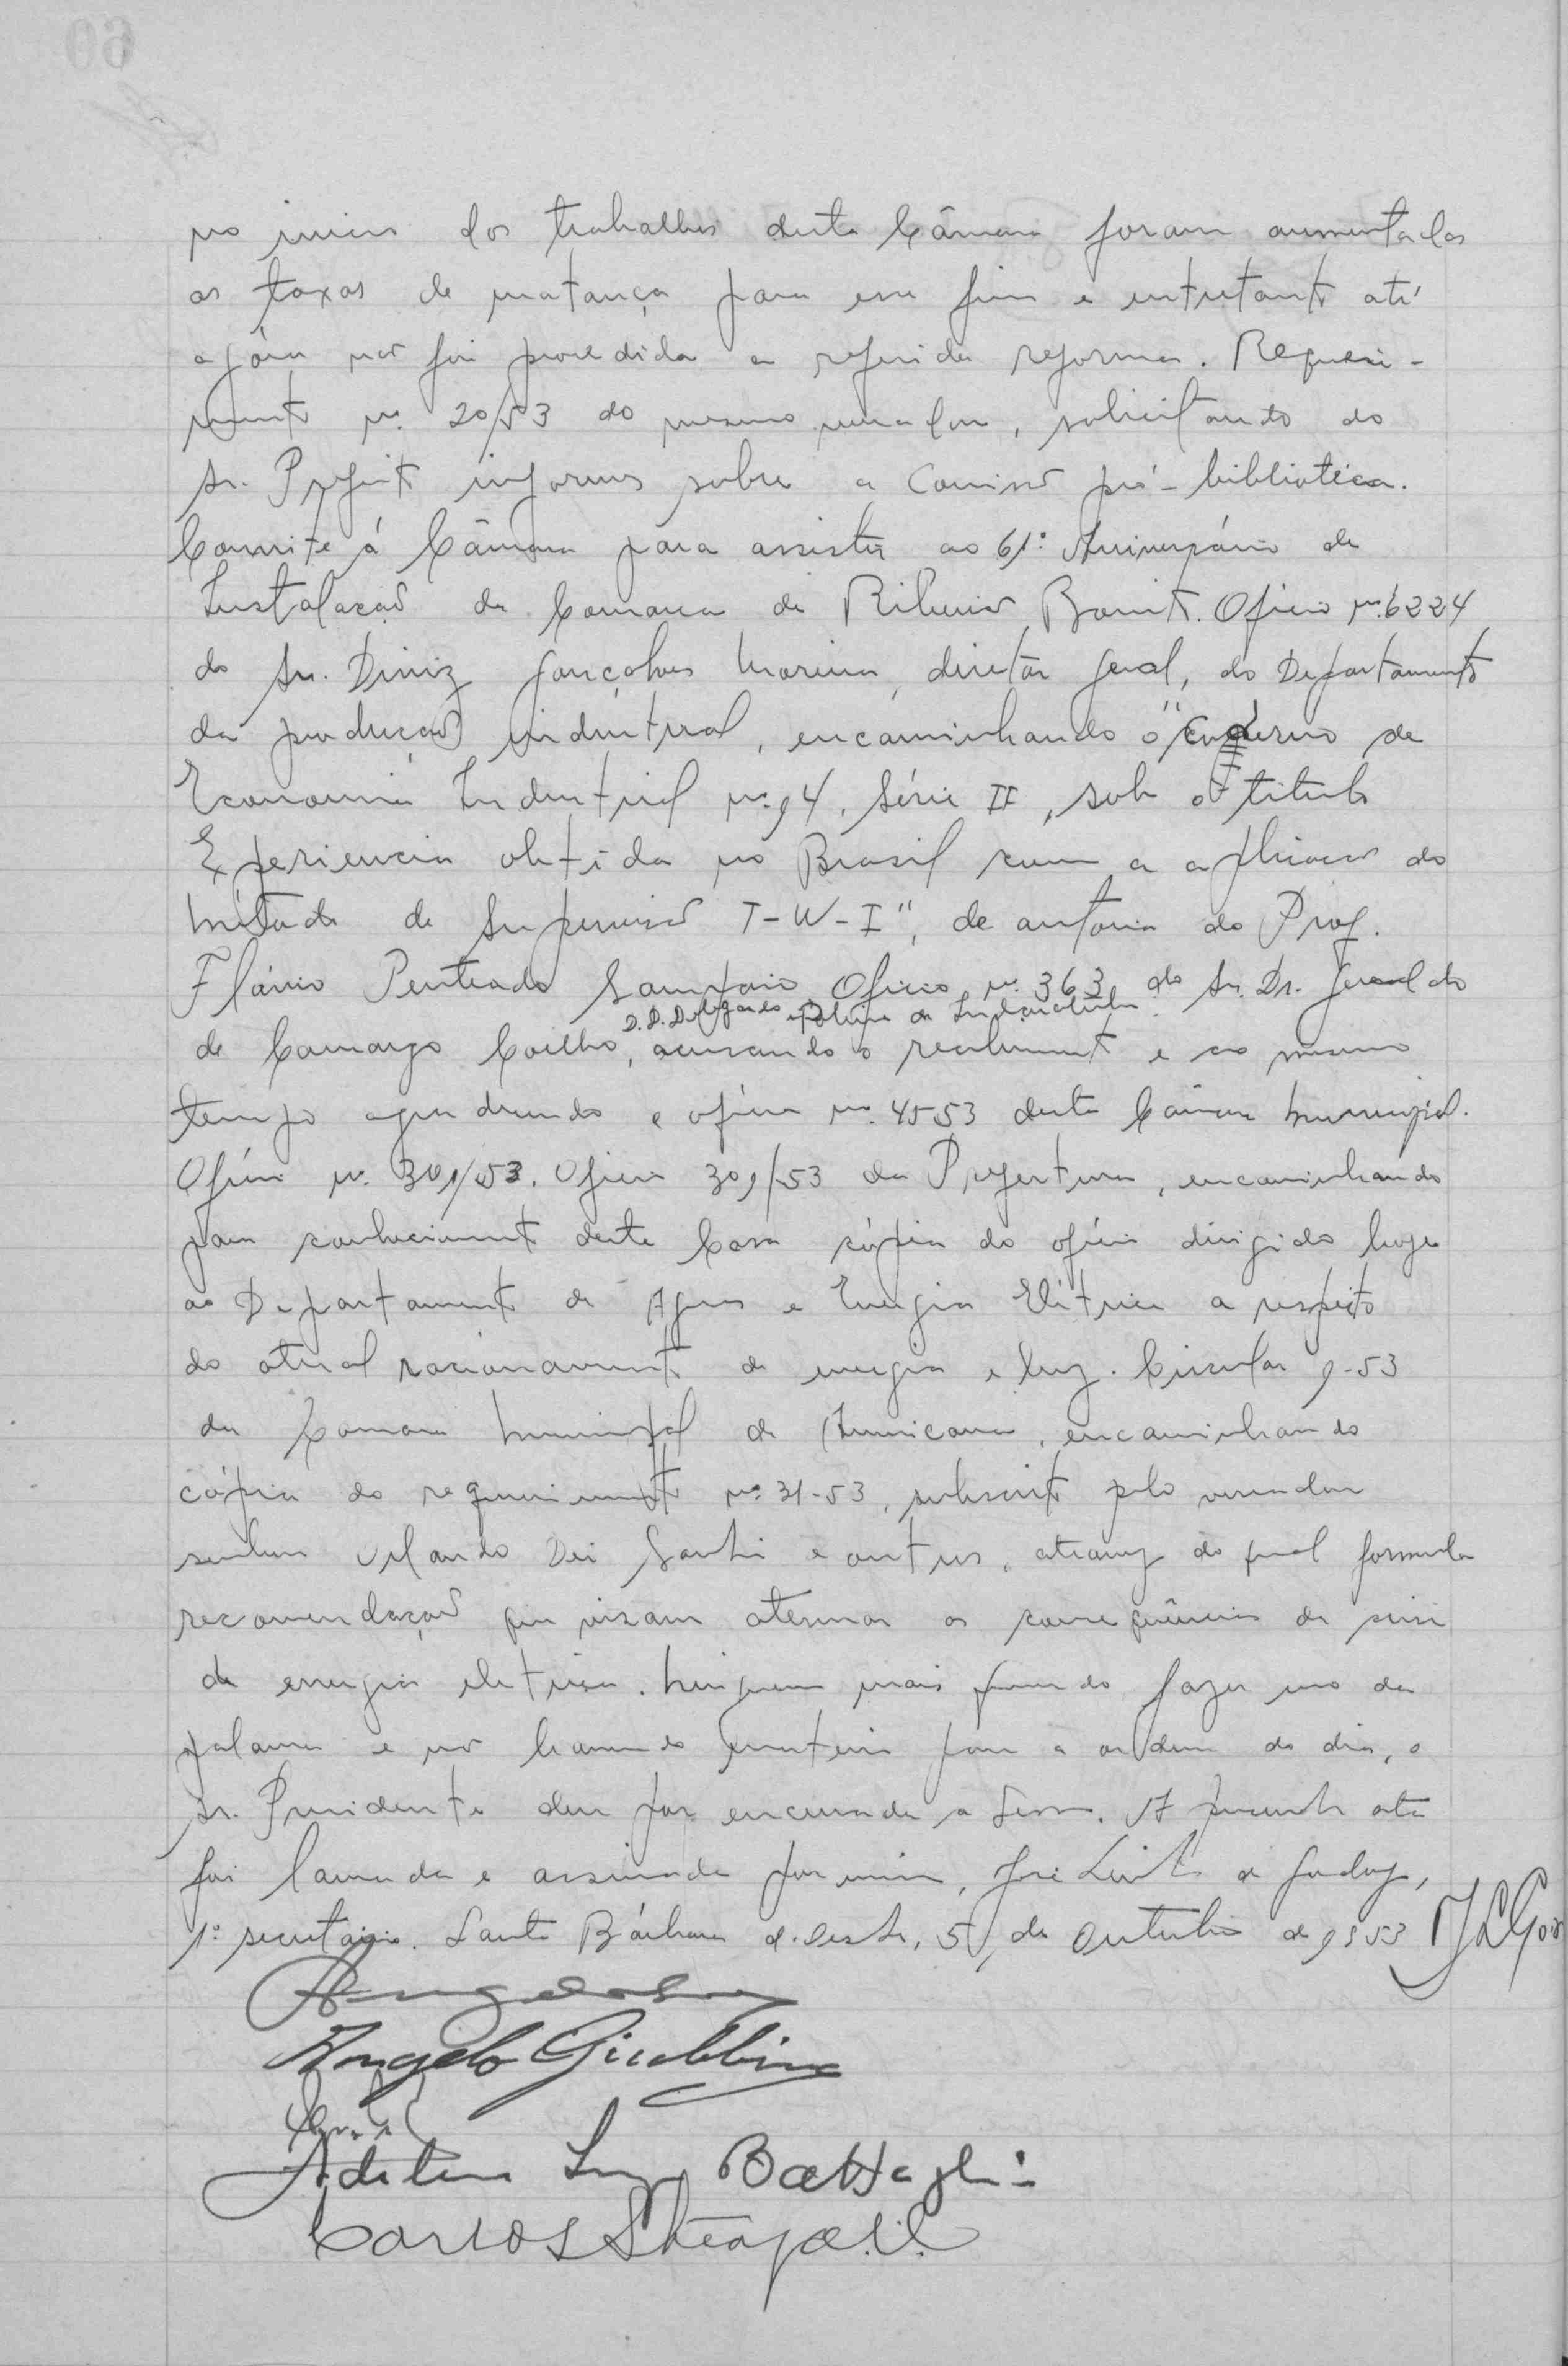 no inicio dos trabalhos desta Câmara foram aumentadas
as taxas de matança para esse fim e entretanto até
agóra não foi procedida a referida reforma. Requeri-
mento nº. 20/53 do mesmo vereador, solicitando do
Sr. Prefeito informes sobre a Comissão pró-biblioteca.
Convite á Câmara para assistir ao 61º. Aniversário de
Instalação da Comarca de Ribeirão Bonito. Oficio nº. 6224
do Sr. Diniz Gonçalves Moreira, diretor geral, do Departamento
da produção industrial, encaminhando o "Caderno de
Economia Industrial nº. 14, Série II, sob o titulo
Experiencia obtida no Brasil com a aplicação do
Método de Supervisão T-W-I", de autoria do Prof.
Flávio Penteado Sampaio. Oficio nº. 363 do Sr. Dr. Geraldo
D.D. Delegado de Policia de Indaiatuba
de Camargo Coelho, acusando o recebimento e ao mesmo
tempo agradecendo o oficio nº. 4553 desta Câmara Municipal.
Ofício nº. 301/53. Oficio 309/53 da Prefeitura, encaminhando
para conhecimento desta Casa cópia do ofício dirigido hoje
ao Departamento de Aguas e Energia Elétrica a respeito
do atual racionamento de energia e luz. Circular 9-53
da Camara Municipal de Americana, encaminhando
cópia do requerimento nº. 31-53, subscrito pelo vereador
senhor Orlando Dei Santi e outros, atravez do qual formula
recomendação que visam atenuar as consequências da crise
de energia eletrica. Ninguem mais querendo fazer uso da
palavra e não havendo materia para a ordem do dia, o
Sr. Presidente deu por encerrada a Sessão. A presente ata
foi lavrada e assinada por mim, José Leite de Godoy,
1º. secretário. Santa Bárbara d'Oeste, 5 de Outubro de 1953
Angelo Giubbina
Battaglia
Carlos Steagall